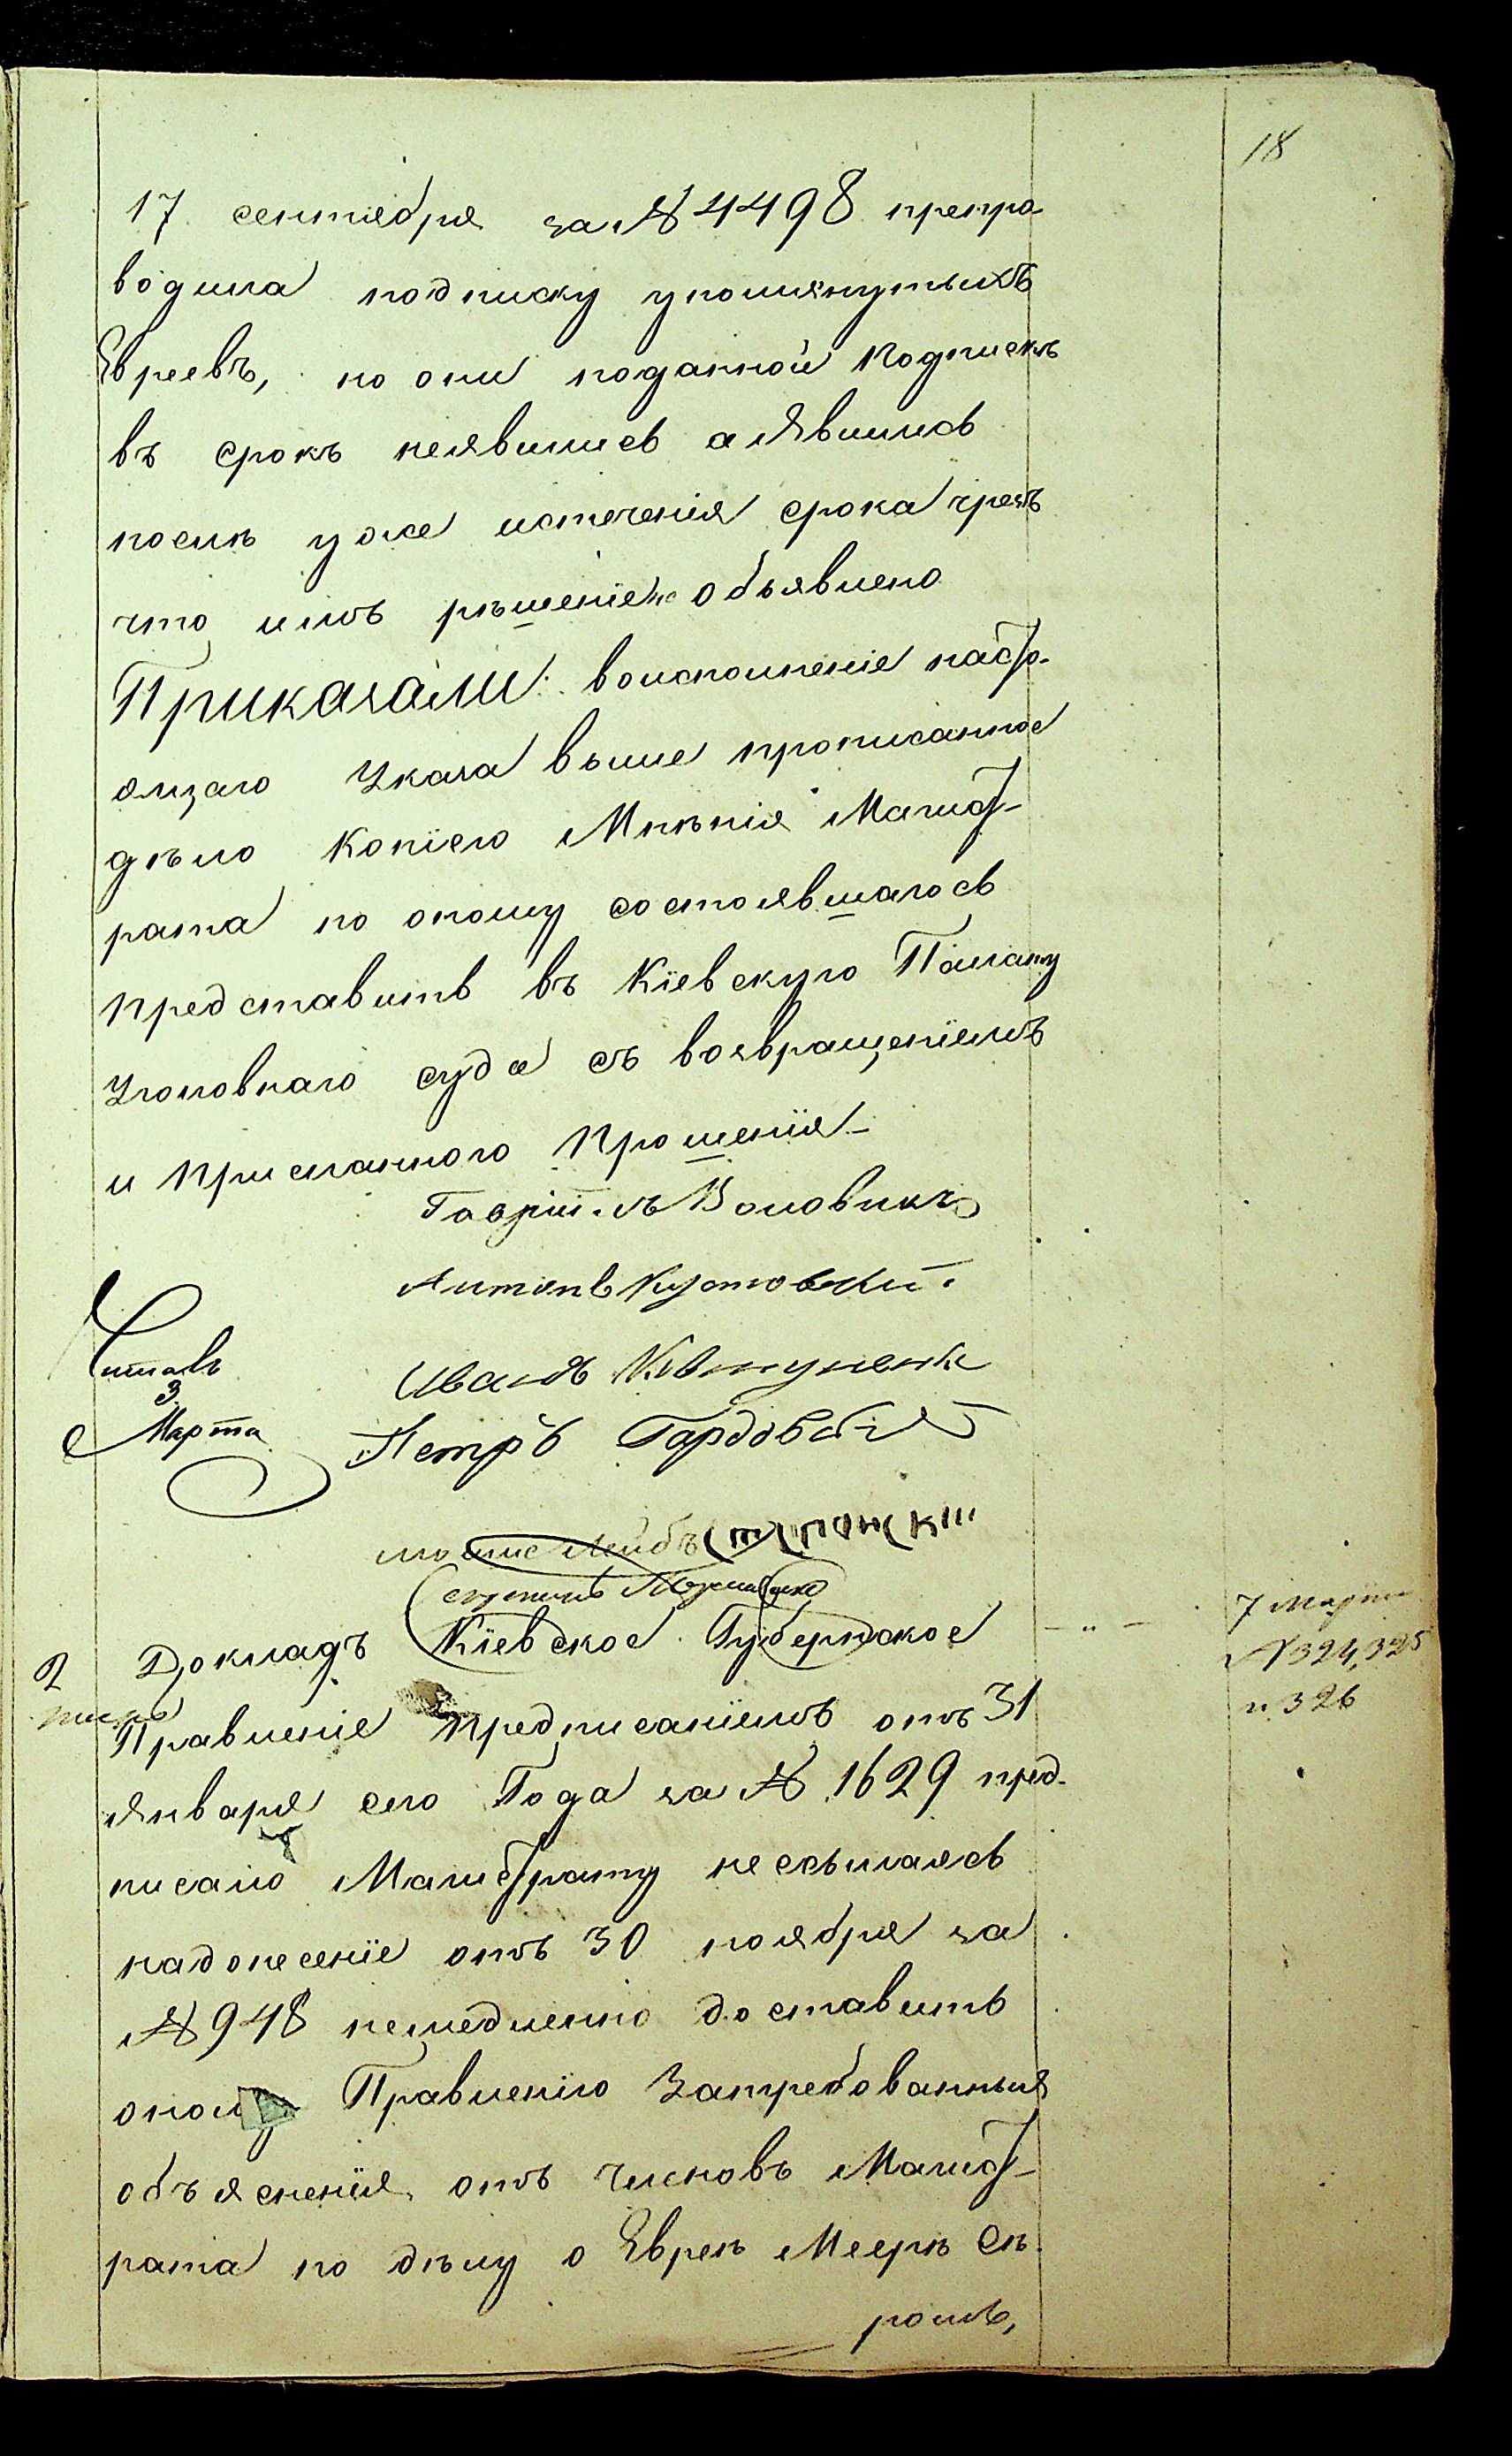 18
17 сентября за № 4498 препро-
водила подписку упомянутыхъ
Евреевъ, но они поданной подпискѣ
въ срокъ неявились а явились
послѣ уже истеченія срока чрезъ
что имъ рѣшеніе не объявлено
Приказали: воисполненіе насто-
ящаго Указа выше прописанное
дѣло копіею Мнѣнія Магист-
рата по оному состоявшагось
представить въ Кіевскую Палату
Уголовнаго суда съ возвращеніемъ
и присланного прошенія.
Гавріилъ Воловикъ
Антонъ Кустовскій.
Иванъ Ковтуненко
Читалъ
3
Марта
Петръ
мошко Лейбъ
Докладъ Кіевское Губернское
7 Марта
№ 324, 325
и 326
2
Правленіе предписаніемъ отъ 31
января сего Года за № 1629 пред-
писало Магистрату нессылаясь
надонесеніе отъ 30 ноября за
№ 948 немедленно доставить
оному Правленію Затребованныя
объясненія отъ членовъ Магист-
рата по дѣлу о Евреѣ Меерѣ Ск-